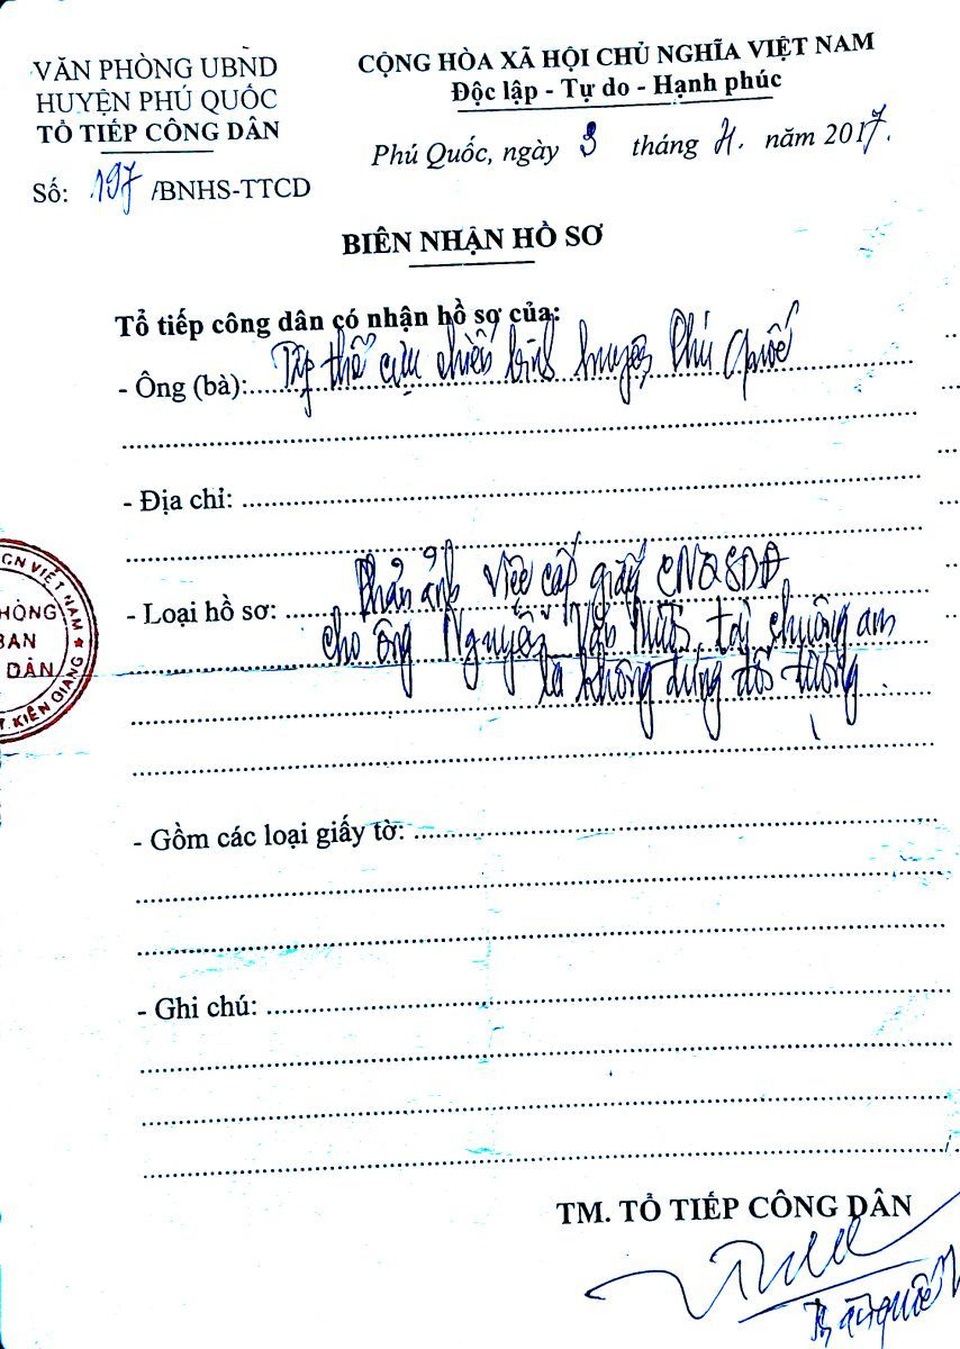 VĂN PHÒNG UBND
HUYỆN PHÚ QUỐC
TỔ TIẾP CÔNG DÂN
Số: 197 /BNHS-TTCD
CỘNG HÒA XÃ HỘI CHỦ NGHĨA VIỆT NAM
Độc lập - Tự do - Hạnh phúc
Phú Quốc, ngày 3 tháng 4. năm 2017.
BIÊN NHẬN HỒ SƠ
Tổ tiếp công dân có nhận hồ sơ của:
- Ông (bà): Tập thể cựu chiến binh huyện Phú Quốc
- Địa chỉ:
- Loại hồ sơ: Phản ảnh việc cấp giấy CNQSDĐ
cho ông Nguyễn Văn tại chuồng am
là không đúng đối tượng.
CN VIỆT NAM
HÒNG
BAN
DÂN
T. KIÊN GIANG
- Gồm các loại giấy tờ:
- Ghi chú:
TM. TỔ TIẾP CÔNG DÂN